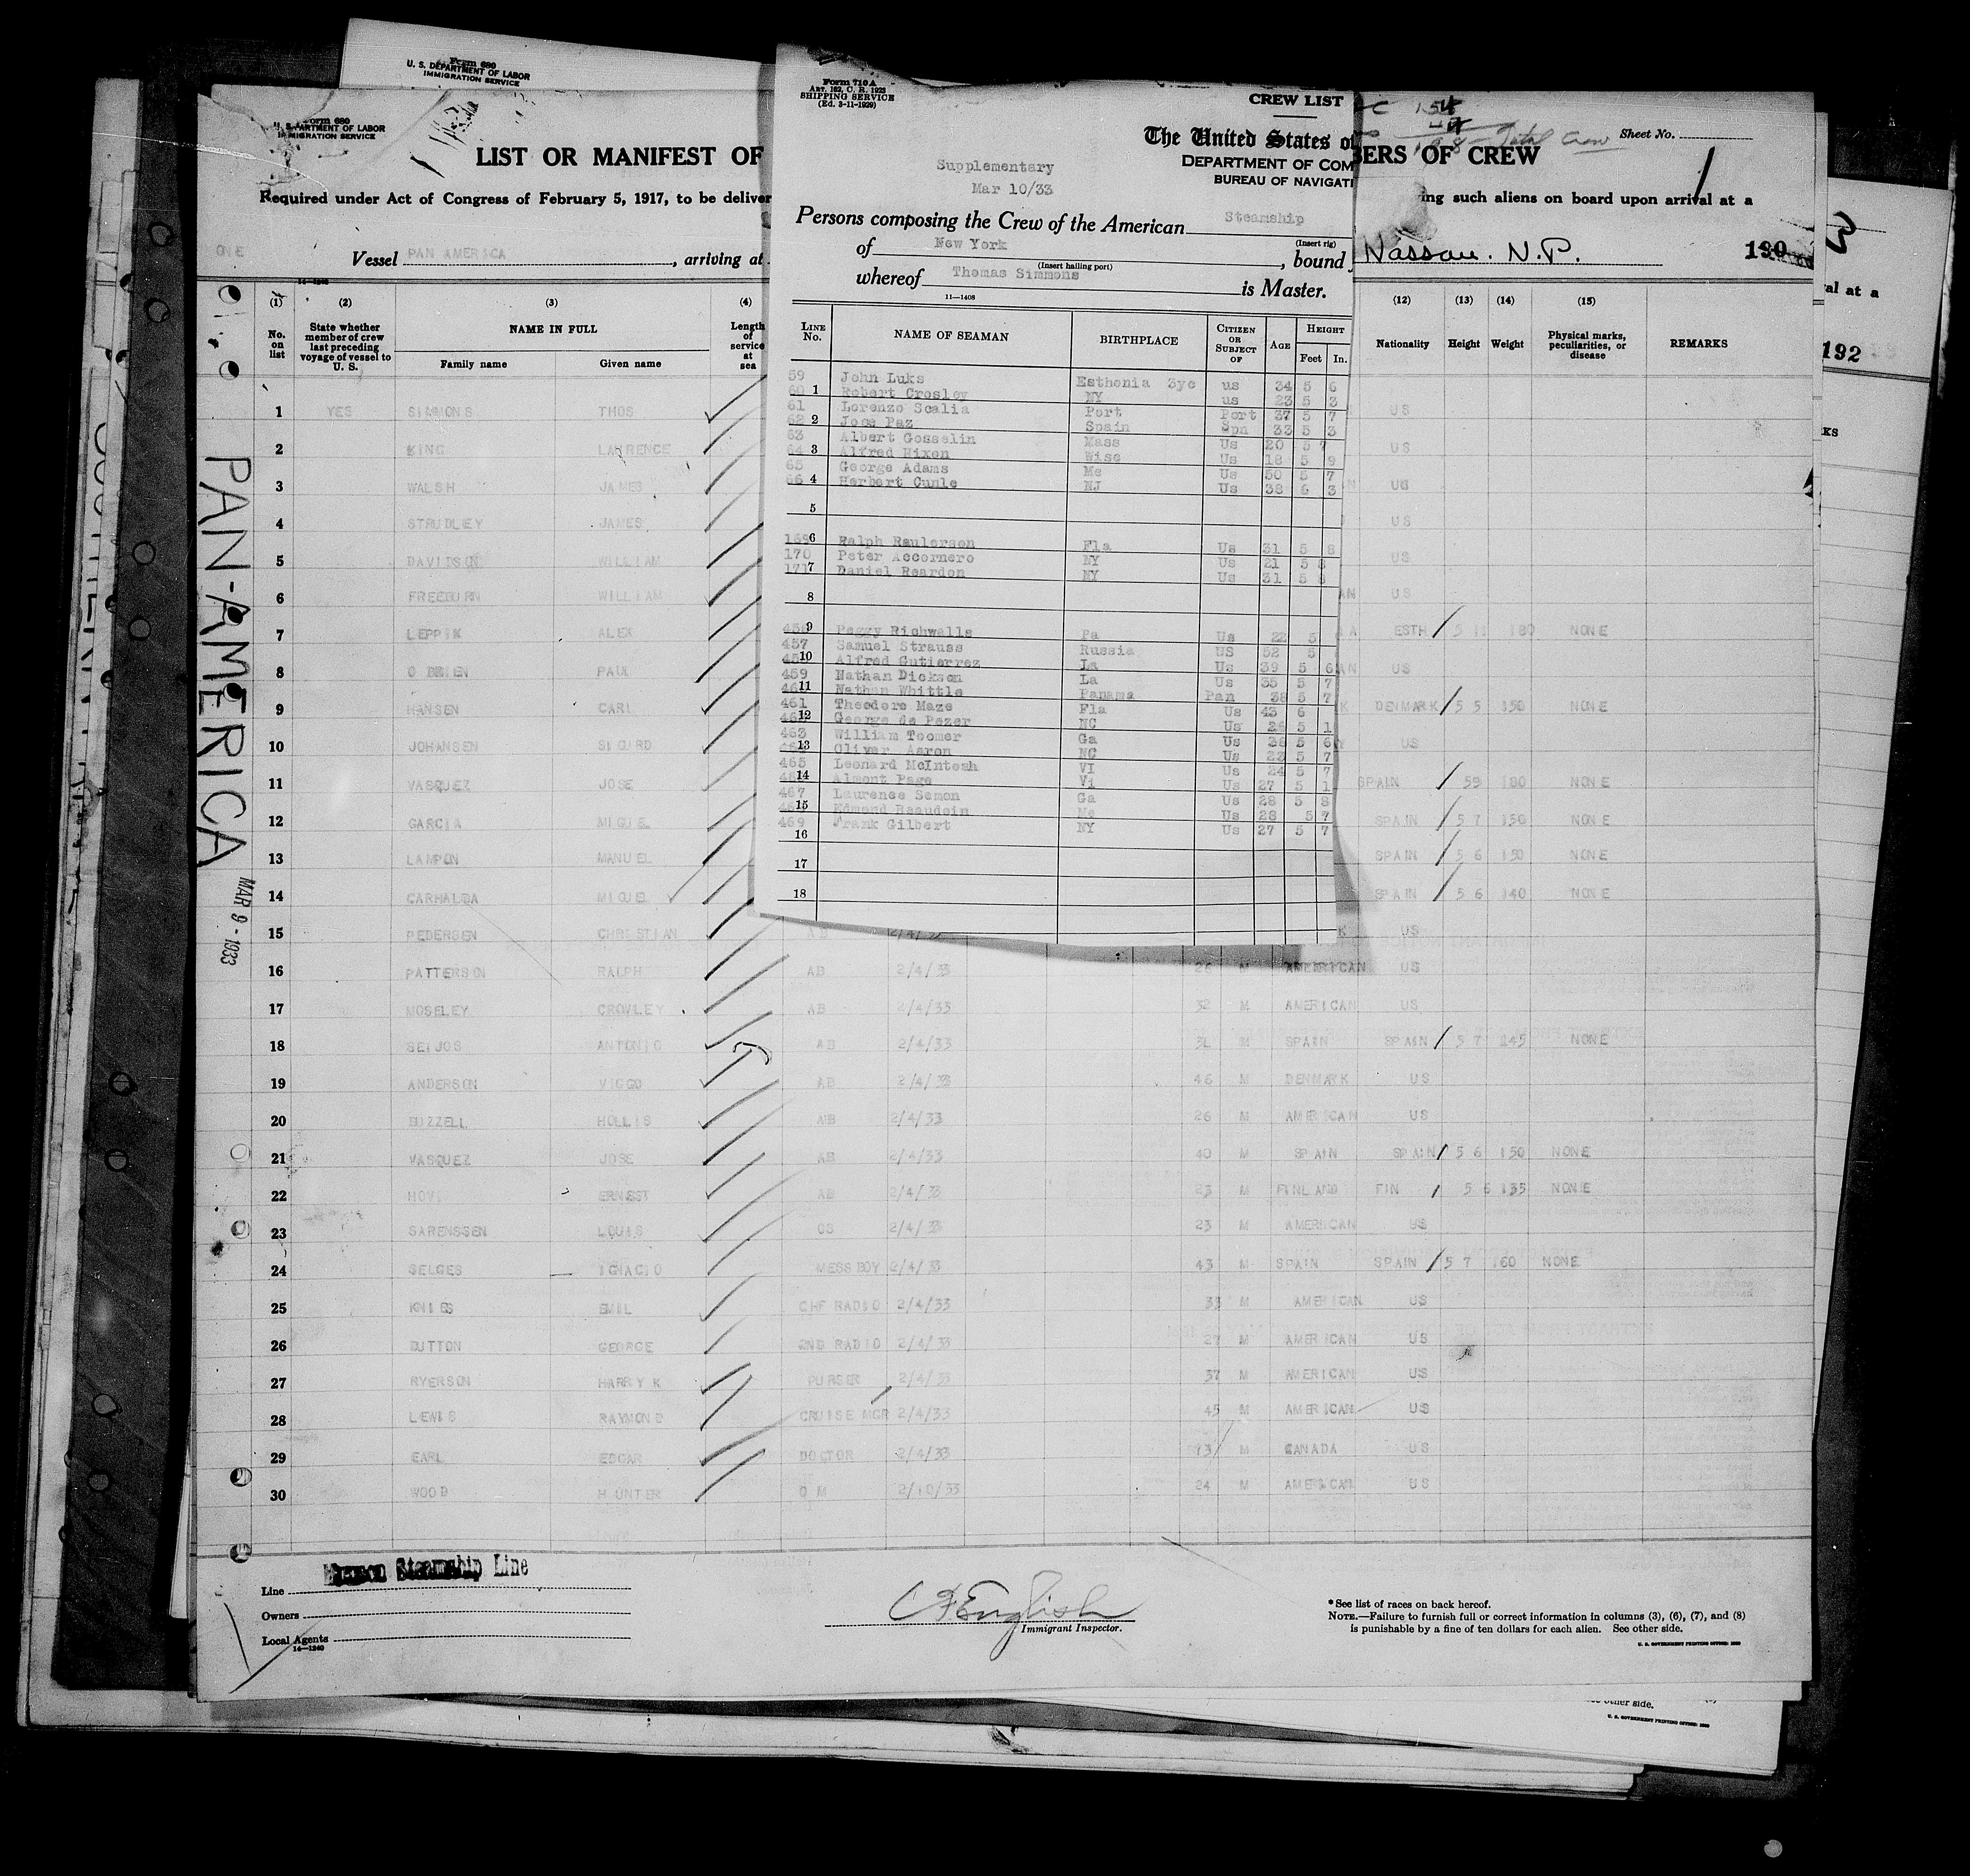 Form 680
U. S. DEPARTMENT OF LABOR
IMMIGRATION SERVICE
Form 680
U. S. DEPARTMENT OF LABOR
IMMIGRATION SERVICE
LIST OR MANIFEST OF
BERS OF CREW
Sheet No.
Total Crew
1
Required under Act of Congress of February 5, 1917, to be deliver
ing such aliens on board upon arrival at a
ONE
Vessel PAN AMERICA, arriving at
Nassau. N.P.
190
3
val at a
192
KS
PAN-AMERICA
MAR 9 - 1933
Form 710 A
ART. 162, C. R. 1923
SHIPPING SERVICE
(Ed. 3-11-1929)
CREW LIST
The United States of
DEPARTMENT OF COM
BUREAU OF NAVIGATI
Supplementary
Mar 10/33
Persons composing the Crew of the American Steamship
(Insert rig)
of New York, bound
(Insert hailing port)
whereof Thomas Simmons is Master.
11—1408
LINE No. NAME OF SEAMAN BIRTHPLACE CITIZEN OR SUBJECT OF AGE HEIGHT Feet In.
59 John Luks Esthonia 3yc us 34 5 6
60 1 Robert Crosley NY us 23 5 3
61 Lorenzo Scalia Port Port 37 5 7
62 2 Jose Paz Spain Spn 33 5 3
63 Albert Gosselin Mass Us 20 5 7
64 3 Alfred Hixen Wisc Us 18 5 9
65 George Adams Me Us 50 5 7
66 4 Herbert Cunle NJ Us 38 6 3
5
169 6 Ralph Raulerson Fla Us 31 5 8
170 Peter Accornero NY Us 21 5 8
171 7 Daniel Reardon NY Us 31 5 8
8
456 9 Peggy Richwalls Pa Us 22 5
457 Samuel Strauss Russia US 52 5
458 10 Alfred Gutierrez La Us 39 5 6
459 Nathan Dickson La Us 35 5 7
460 11 Nathan Whittle Panama Pan 38 5 7
461 Theodore Maze Fla Us 43 6
462 12 George de Pezer NC Us 26 5 1
463 William Toomer Ga Us 36 5 6
464 13 Oliver Aaron NC Us 23 5 7
465 Leonard McIntosh VI Us 24 5 7
466 14 Almont Page Vi Us 27 5 1
467 Laurence Semon Ga Us 28 5 8
468 15 Edmond Beaudoin Me Us 28 5 7
469 Frank Gilbert NY Us 27 5 7
16
17
18
(1) (2) (3) (4) (12) (13) (14) (15)
No. on list
State whether member of crew last preceding voyage of vessel to U. S.
NAME IN FULL
Family name Given name
Length of service at sea
Nationality Height Weight
Physical marks, peculiarities, or disease
REMARKS
1 YES SIMMONS THOS US
2 KING LAWRENCE US
3 WALSH JAMES US
4 STRUDLEY JAMES US
5 DAVIDSON WILLIAM US
6 FREEBURN WILLIAM US
7 LEPPIK ALEX ESTH 5 11 180 NONE
8 O BRIEN PAUL US
9 HANSEN CARL DENMARK 5 5 150 NONE
10 JOHANSEN SIGURD US
11 VASQUEZ JOSE SPAIN 59 180 NONE
12 GARCIA MIGUEL SPAIN 5 7 150 NONE
13 LAMPON MANUEL SPAIN 5 6 150 NONE
14 CARHALDA MIGUEL SPAIN 5 6 140 NONE
15 PEDERSEN CHRISTIAN AB 2/4/33 US
16 PATTERSON RALPH AB 2/4/33 26 M AMERICAN US
17 MOSELEY CROWLEY AB 2/4/33 32 M AMERICAN US
18 SEIJOS ANTONIO AB 2/4/33 31 M SPAIN SPAIN 5 7 145 NONE
19 ANDERSON VIGGO AB 2/4/33 46 M DENMARK US
20 BUZZELL HOLLIS AB 2/4/33 26 M AMERICAN US
21 VASQUEZ JOSE AB 2/4/33 40 M SPAIN SPAIN 5 6 150 NONE
22 HOVI ERNEST AB 2/4/33 23 M FINLAND FIN 5 6 135 NONE
23 SARENSSEN LOUIS OS 2/4/33 23 M AMERICAN US
24 SELGES IGNACIO MESS BOY 2/4/33 43 M SPAIN SPAIN 5 7 160 NONE
25 KNIES EMIL CHF RADIO 2/4/33 33 M AMERICAN US
26 DUTTON GEORGE 2ND RADIO 2/4/33 27 M AMERICAN US
27 RYERSON HARRY K PURSER 2/4/33 37 M AMERICAN US
28 LEWIS RAYMOND CRUISE MGR 2/4/33 45 M AMERICAN US
29 EARL EDGAR DOCTOR 2/4/33 73 M CANADA US
30 WOOD HUNTER Q M 2/10/33 24 M AMERICAN US
Line Munson Steamship Line
Owners
Local Agents
14—1240
C F English
Immigrant Inspector.
* See list of races on back hereof.
NOTE.—Failure to furnish full or correct information in columns (3), (6), (7), and (8)
is punishable by a fine of ten dollars for each alien. See other side.
U. S. GOVERNMENT PRINTING OFFICE: 1930
other side.
U. S. GOVERNMENT PRINTING OFFICE: 1930